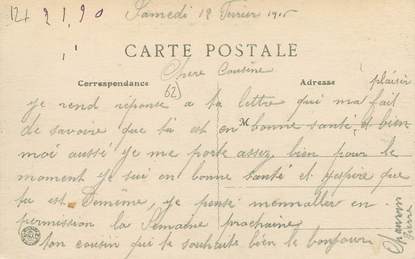 12+ 21,90
Samedi 12 Fevrier 1916
CARTE POSTALE
Chere Cousine
Correspondance
Adresse
(62)
plaisir
je rend réponse a ta lettre qui ma fait
de savoire que tu est en bonne santé, et bien
M
moé aussé je me porte assez bien pour le
moment je sui en bonne santé et jéspère que
tu est Demême, je pense mennaller en
permission la Semaine prochaine
ton cousin qui te souhaite bien le bonjour
Pierre